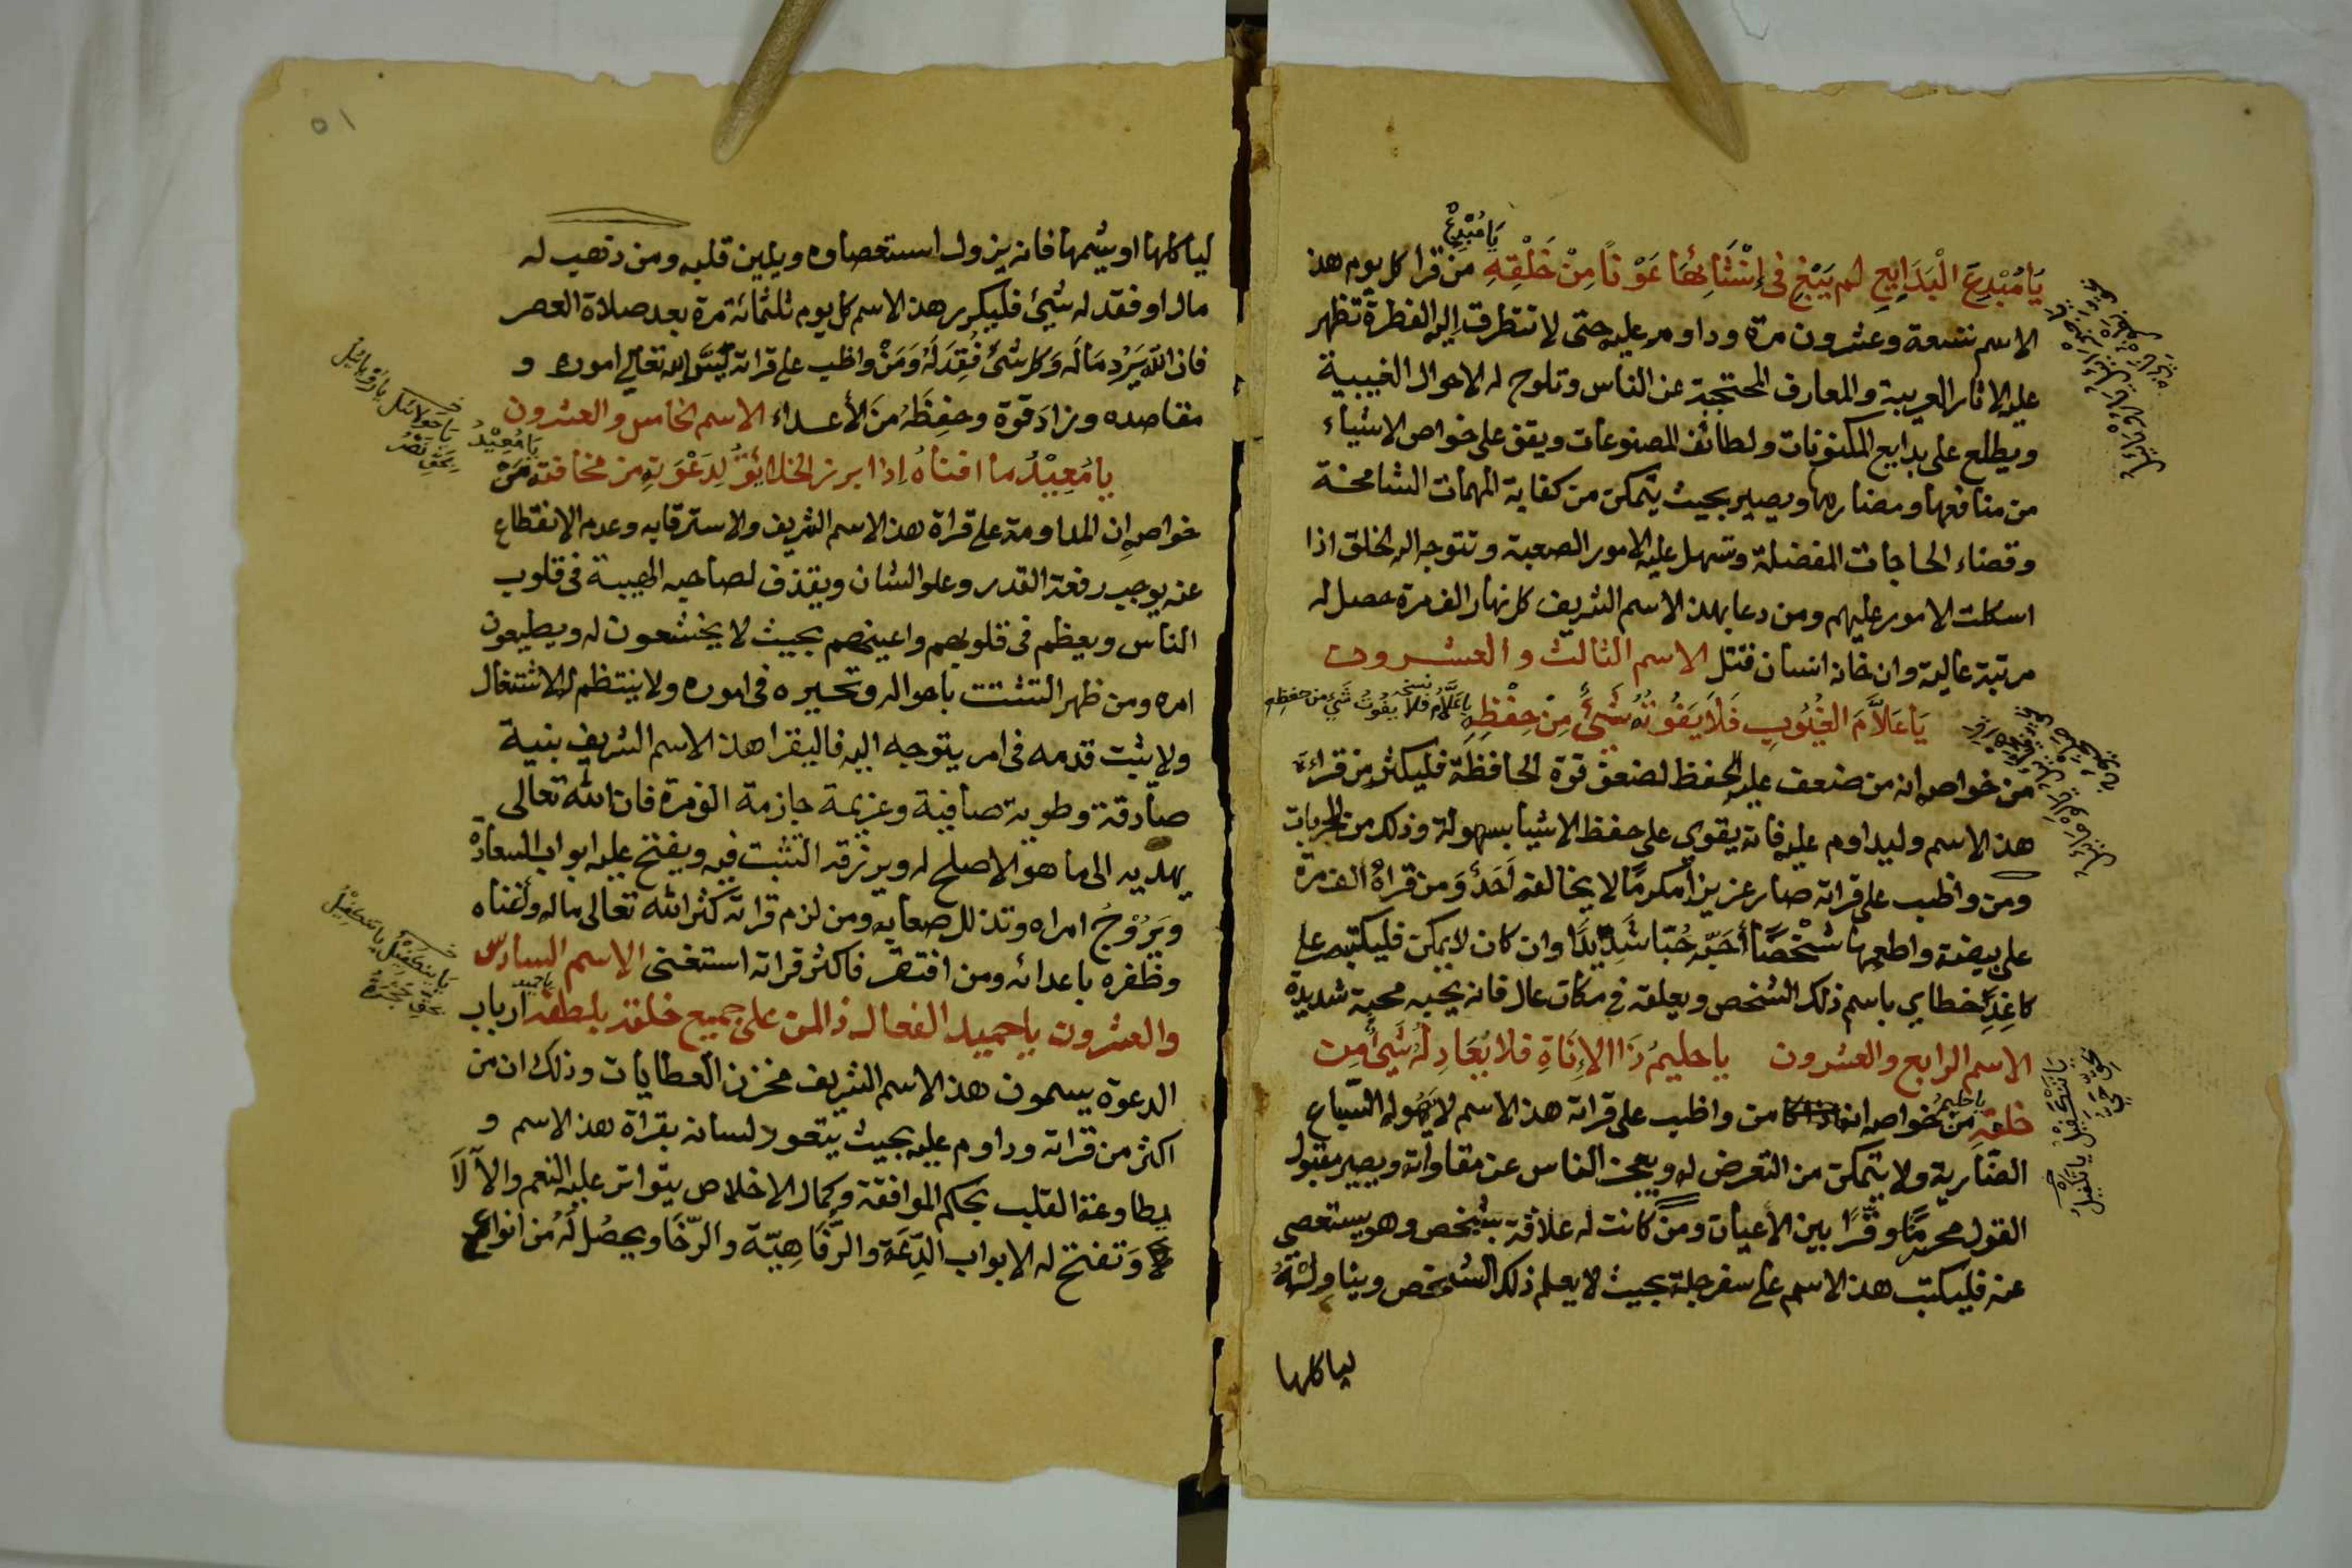 يا مُبْدِعُ
يَا مُبْدِعَ الْبَدَايِعِ لم يَبْغِ فى إِنْشَائِهَا عَوْنًا مِنْ خَلْقِهِ مَن قرا كل يوم هذ
الاسم تسعة وعشرون مرة وداوم عليه حتى لا تتطرق اليه الفطرة تظهر
عليه الاثار العربية والمعارف المحتجبة عن الناس وتلوح له الاحوال الغيبية
ويطلع على بدايع المكنونات ولطائف المصنوعات ويقف على خواص الاشياء
من منافعها ومضارها ويصير بحيث يتمكن من كفاية المهمات الشامخة
وقضاء الحاجات المفضلة وتسهل عليه الامور الصعبة وتتوجه اله الخلق اذا
اسكلت الامور عليهم ومن دعا بهذ الاسم الشريف كل نهار الف مرة حصل له
مرتبة عالية وان خانه انسان قتل الاسم الثالث والعشرون
يَا عَلاَّمَ الغُيُوبِ فَلاَ يَفُوتُهُ شَئٌ مِنْ حِفْظِهِ
نسخه يا عَلَّامُ فلا يفوت شَيْ من حفظه
مَن خواصه انه من ضعف عليه الحفظ لضعف قوة الحافظة فليكثر من قراءة
هذ الاسم وليداوم عليه فانه يقوى على حفظ الاشيا بسهولة وذلك من المجربات
ومن واظب على قراته صار عزيزا مكرمًا لا يخالفه اَحَدٌ وَمن قراهُ الف مرة
على بيضة واطعمها شخْصًا أحَبّه حُبّا شَدِيْدًا وان كان لا يمكن فليكتبه على
كاغِدٍ خطاي باسم ذلك الشخص ويعلقه في مكان عال فانه يحبه محبة شديدة
الاسم الرابع والعشرون يا حليمُ ذَا الاِنَاةِ فلا يُعَادِلُهُ شَئٌ مِن
خلقه يا حليمُ من خواصه ان من واظب على قراته هذ الاسم لا السّباع
الضّارية ولا يتمكن من التعرض له ويعجز الناس عن مقاواته ويصير مقبول
القول محرمًا وقرًا بين الاعيان ومنْ كانت له علاقة بشخص وهو يستعصى
عنه فليكتب هذ الاسم على سفرجلة بحيث لا يعلم ذلك الشخص ويناوِلتهُ
لياكلها
٥١
لياكلها او يشمها فانه يزول استعصاوه ويلين قلبه ومن ذهب له
مال او فقد له شيئ فليكرر هذ الاسم كل يوم ثلثمائة مرة بعد صلاة العصر
فان الله يَرُد مَالَه وَكل شئ فُقِدَ لَهُ وَمَنْ واظب على قراته يسَّر الله تعالى اموره و
مقاصده وزادَ قوة وحفِظَهُ مَن الأعداء الاسم الخامس والعشرون
يا مُعِيْدُ
يا مُعِيْدُ ما افناهُ اِذا ابرز الخلائِقُ لِدَعْوَتِهِ من مخافته مَنْ
خواصهِ ان المداومة على قراة هذ الاسم الشريف والاسترقابه وعدم الانقطاع
عنه يوجب رفعة القدر وعلو الشان ويقذف لصاحبه الهيبة فى قلوب
الناس ويعظم فى قلوبهم واعينهم بحيث لا يخشعون له ويطيعون
امره ومن ظهر التشتت باحواله وتحيره فى اموره ولا ينتظم له الاشتغال
ولا يثبت قدمه فى امر يتوجه اليه فاليقرا هذ الاسم الشريف بنية
صادقة وطوية صافية وعزيمة جازمة الف مرة فان الله تعالى
يهديه الى ما هو الاصلح له ويرزقه التثبت فيه ويفتح عليه ابواب السعادة
ويَرُوْجُ امراه وتذلل صعابه ومن لزم قراته كثر الله تعالى ماله وأغناه
وظفره باعدائه ومن افتقر فاكثر قراته استغنى الاسم السادس
والعشرون يا حميد الفعال ذالمن على جميع خلقه بلطفه يا حميد ارباب
الدعوة يسمون هذ الاسم الشريف مخزن العطايات وذلك ان من
اكثر من قراته وداوم عليه بحيث يتعود لسانه بقراة هذ الاسم و
يطاوعة القلب بحكم الموافقة وكمال الاخلاص يتواتر عليه النعم والآلَا
وَتفتح له الابواب الدِّعَة والرَّفاهِيّة والرّخَا ويحصُل لَهُ من انواع